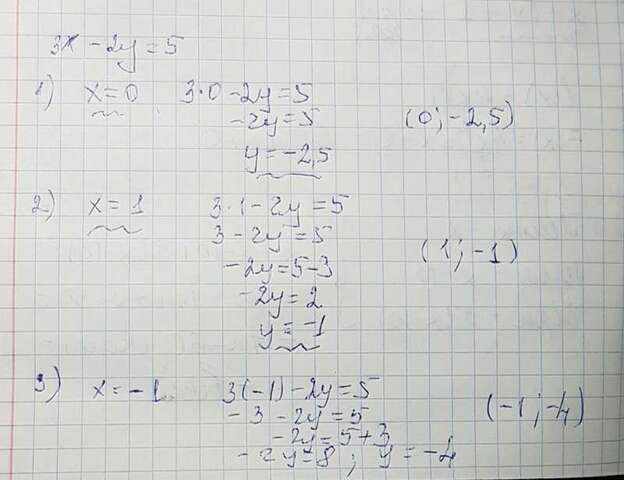 3x - 2y = 5
1) x = 0 3·0 - 2y = 5
-2y = 5 (0; -2,5)
y = -2,5
2) x = 1 3·1 - 2y = 5
3 - 2y = 5
-2y = 5-3 (1; -1)
-2y = 2
y = -1
3) x = -1 3(-1) - 2y = 5
-3 - 2y = 5 (-1; -4)
-2y = 5+3
-2y = 8; y = -4